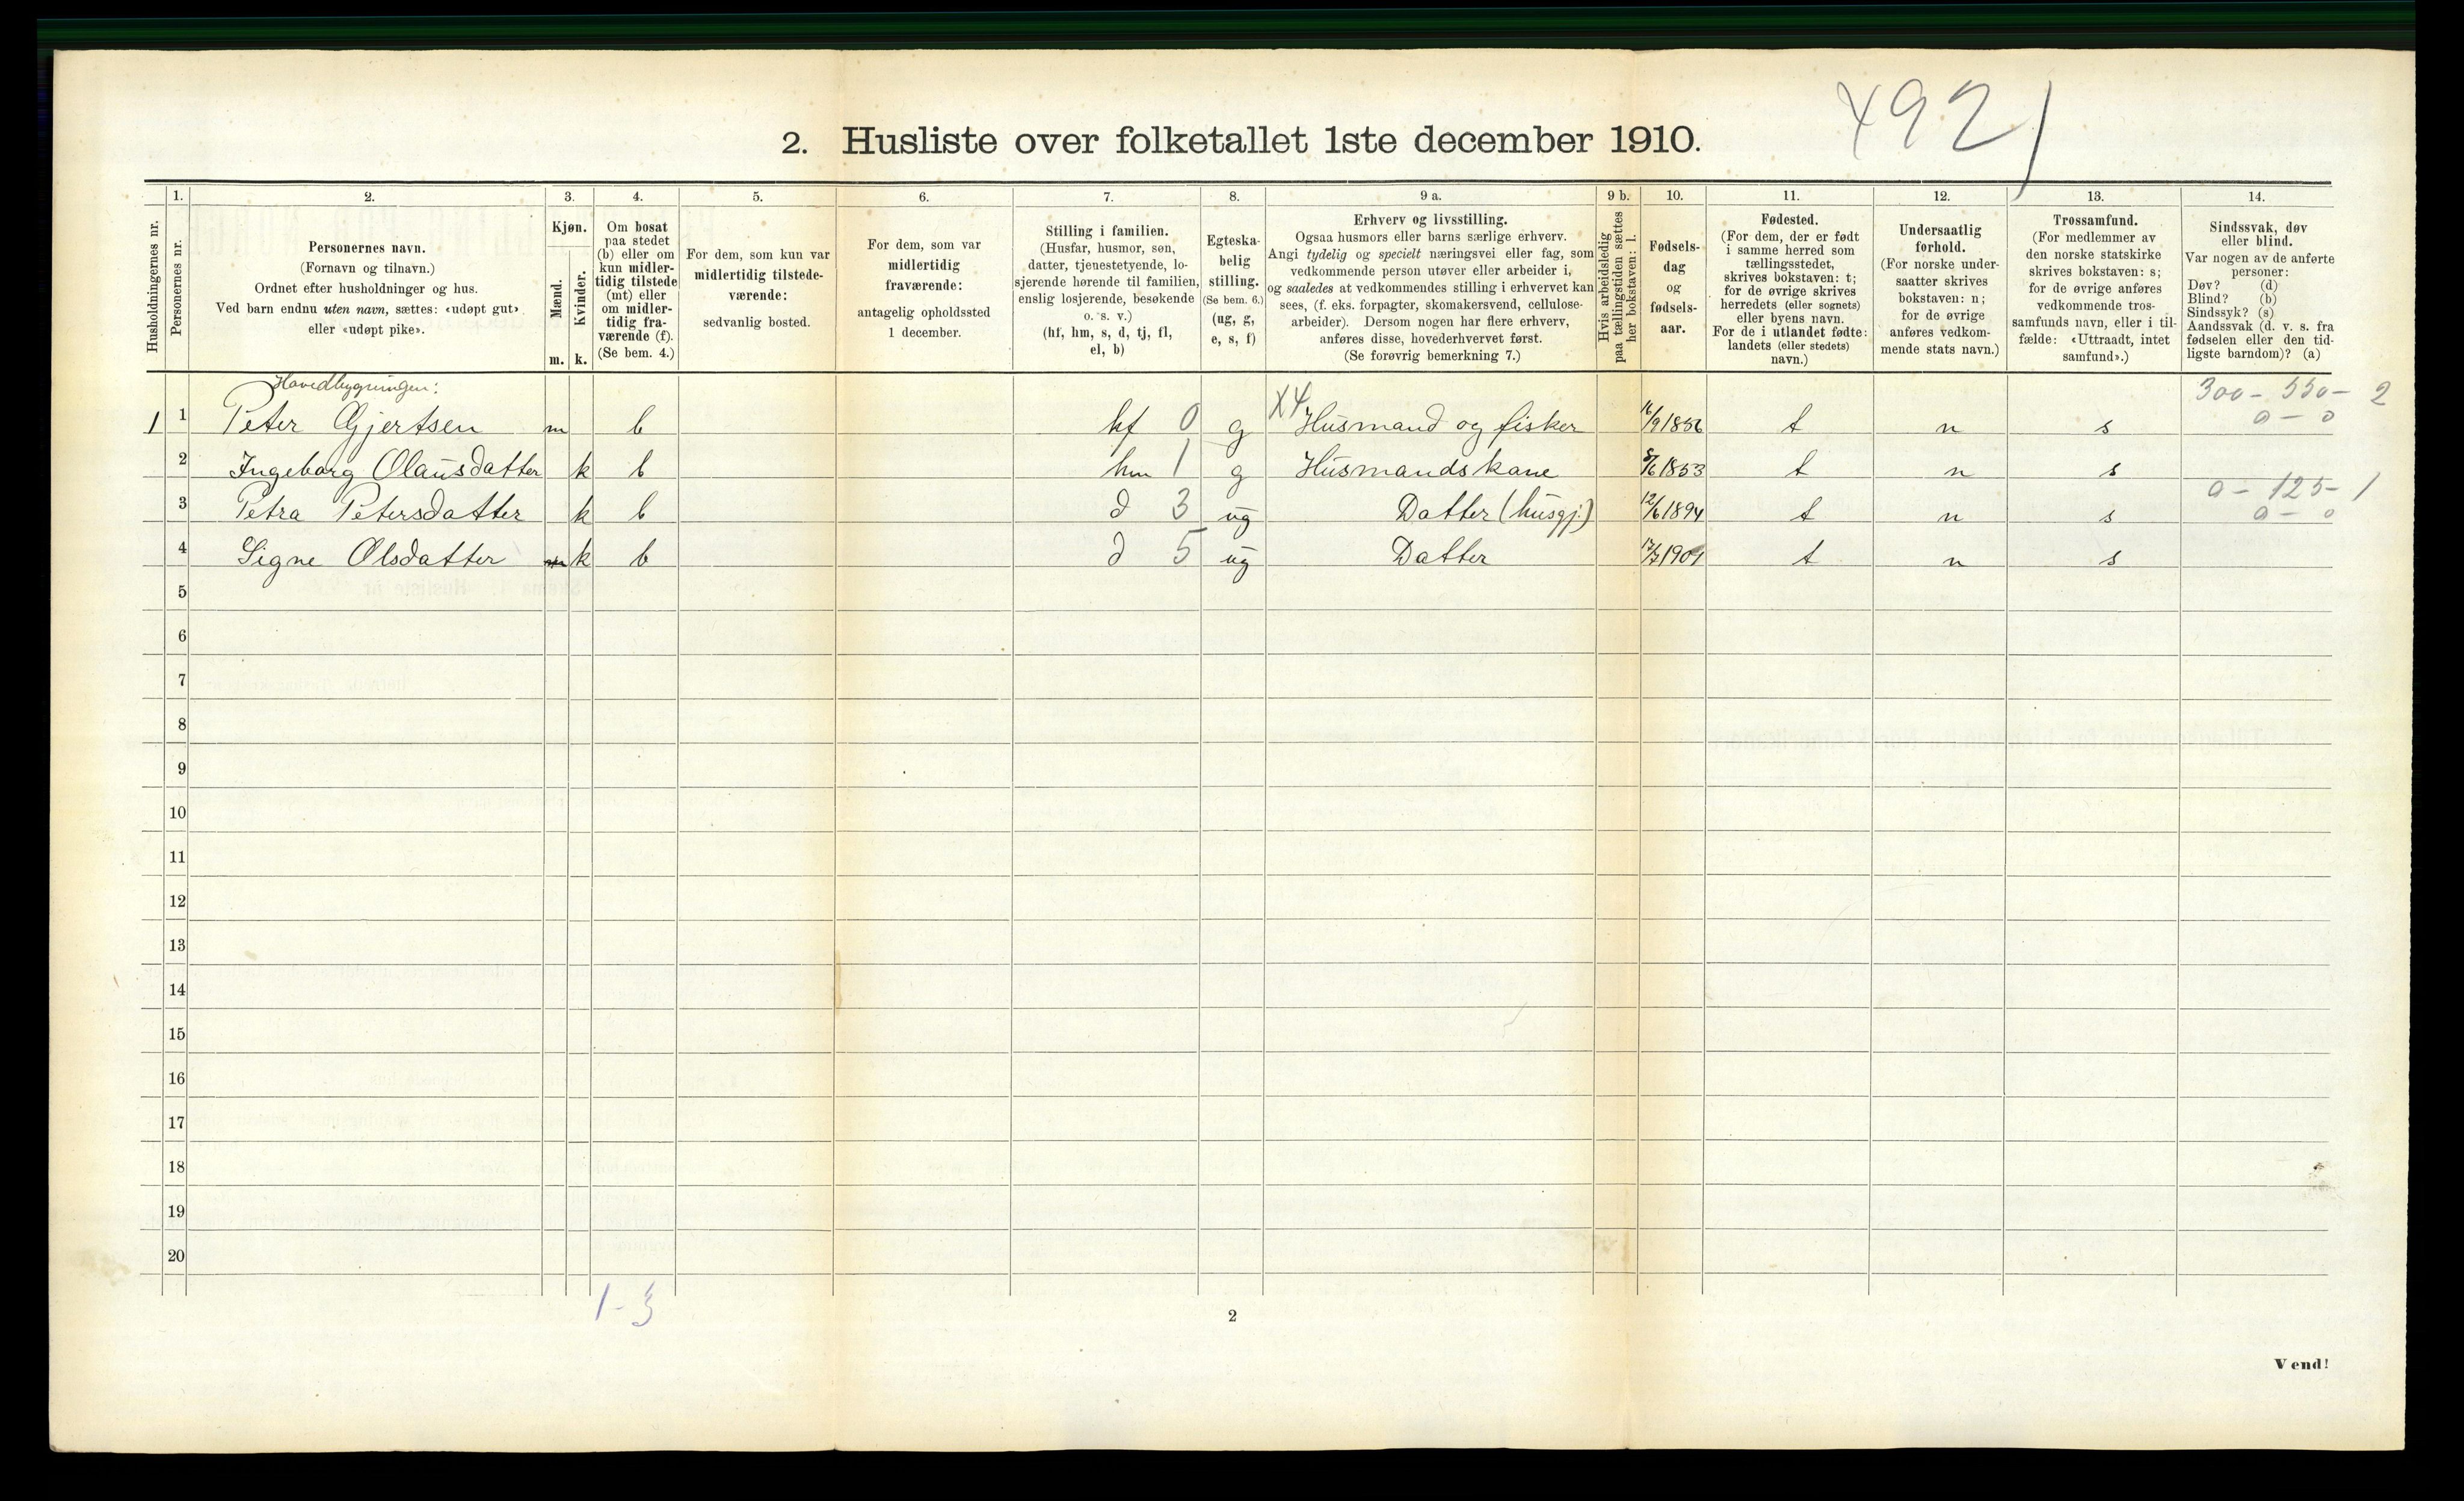 4921
2. Husliste over folketallet 1ste december 1910.
Husholdningernes nr.
1.
Personernes nr.
2.
Personernes navn.
(Fornavn og tilnavn.)
Ordnet efter husholdninger og hus.
Ved barn endnu uten navn, sættes: «udøpt gut»
eller «udøpt pike».
3.
Kjøn.
Mænd.
Kvinder.
m. k.
4.
Om bosat
paa stedet
(b) eller om
kun midler-
tidig tilstede
(mt) eller
om midler-
tidig fra-
værende (f).
(Se bem. 4.)
5.
For dem, som kun var
midlertidig tilstede-
værende:
sedvanlig bosted.
6.
For dem, som var
midlertidig
fraværende:
antagelig opholdssted
1 december.
7.
Stilling i familien.
(Husfar, husmor, søn,
datter, tjenestetyende, lo-
sjerende hørende til familien,
enslig losjerende, besøkende
o. s. v.)
(hf, hm, s, d, tj, fl,
el, b)
8.
Egteska-
belig
stilling.
(Se bem. 6.)
(ug, g,
e, s, f)
9 a.
Erhverv og livsstilling.
Ogsaa husmors eller barns særlige erhverv.
Angi tydelig og specielt næringsvei eller fag, som
vedkommende person utøver eller arbeider i,
og saaledes at vedkommendes stilling i erhvervet kan
sees, (f. eks. forpagter, skomakersvend, cellulose-
arbeider). Dersom nogen har flere erhverv,
anføres disse, hovederhvervet først.
(Se forøvrig bemerkning 7.)
9 b.
Hvis arbeidsledig
paa tællingstiden sættes
her bokstaven: l.
10.
Fødsels-
dag
og
fødsels-
aar.
11.
Fødested.
(For dem, der er født
i samme herred som
tællingsstedet,
skrives bokstaven: t;
for de øvrige skrives
herredets (eller sognets)
eller byens navn.
For de i utlandet fødte:
landets (eller stedets)
navn.)
12.
Undersaatlig
forhold.
(For norske under-
saatter skrives
bokstaven: n;
for de øvrige
anføres vedkom-
mende stats navn.)
13.
Trossamfund.
(For medlemmer av
den norske statskirke
skrives bokstaven: s;
for de øvrige anføres
vedkommende tros-
samfunds navn, eller i til-
fælde: «Uttraadt, intet
samfund».)
14.
Sindssvak, døv
eller blind.
Var nogen av de anførte
personer:
Døv? (d)
Blind? (b)
Sindssyk? (s)
Aandssvak (d. v. s. fra
fødselen eller den tid-
ligste barndom)? (a)
Hovedbygningen:
300 - 550 - 2
1 1 Peter Gjertsen m b hf 0 g X4 Husmand og fisker 16/9 1856 t n s 0 - 0
2 Ingeborg Olausdatter k b hm 1 g Husmandskone 8/6 1853 t n s
0 - 125 - 1
3 Petra Petersdatter k b d 3 ug Datter (husgj.) 12/6 1894 t n s 0 - 0
4 Signe Olsdatter m k b d 5 ug Datter t n s
5
6
7
8
9
10
11
12
13
14
15
16
17
18
19
20
1 - 3
2
Vend!